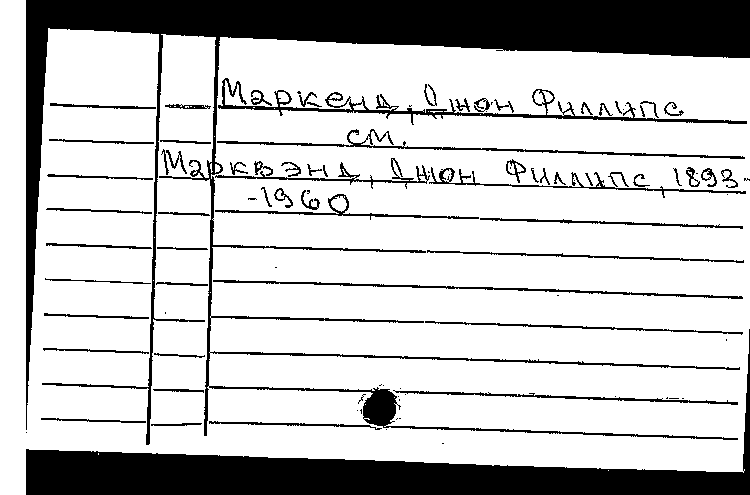 Маркенд, Джон Филлипс
см.
Марквэнд, Джон Филлипс, 1893-
-1960